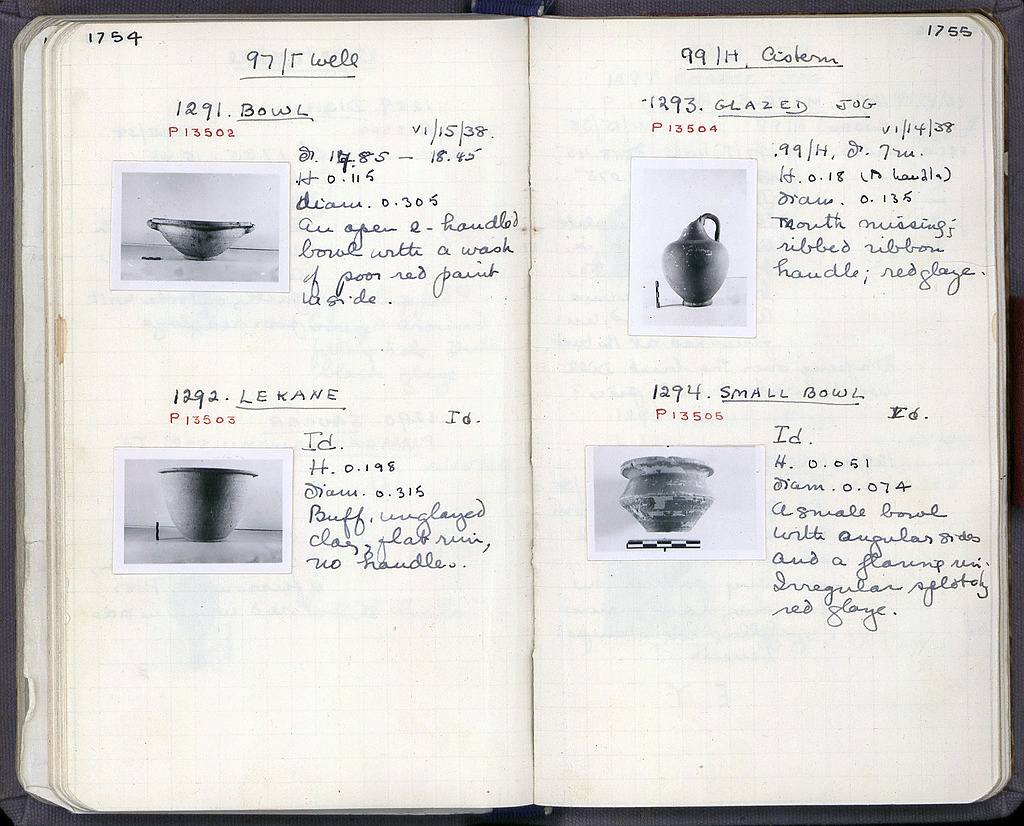 1754
97/Γ well
1291. BOWL
P13502
VI/15/38.
Dr. 17.85 – 18.45
H 0.115
diam. 0.305
An open 2-handled
bowl with a wash
of poor red paint
inside.
1292. LEKANE
P13503
Id.
Id.
H. 0.198
diam. 0.315
Buff, unglazed
clay, flat rim,
no handles.
1755
99/H, Cistern
1293. GLAZED JUG
P13504
VI/14/38
99/H, Dr. 7m.
H. 0.18 (to handle)
diam. 0.135
Mouth missing;
ribbed ribbon
handle; red glaze.
1294. SMALL BOWL
P13505
Id.
Id.
H. 0.051
diam. 0.074
A small bowl
with angular sides
and a flaring rim.
Irregular splotchy
red glaze.